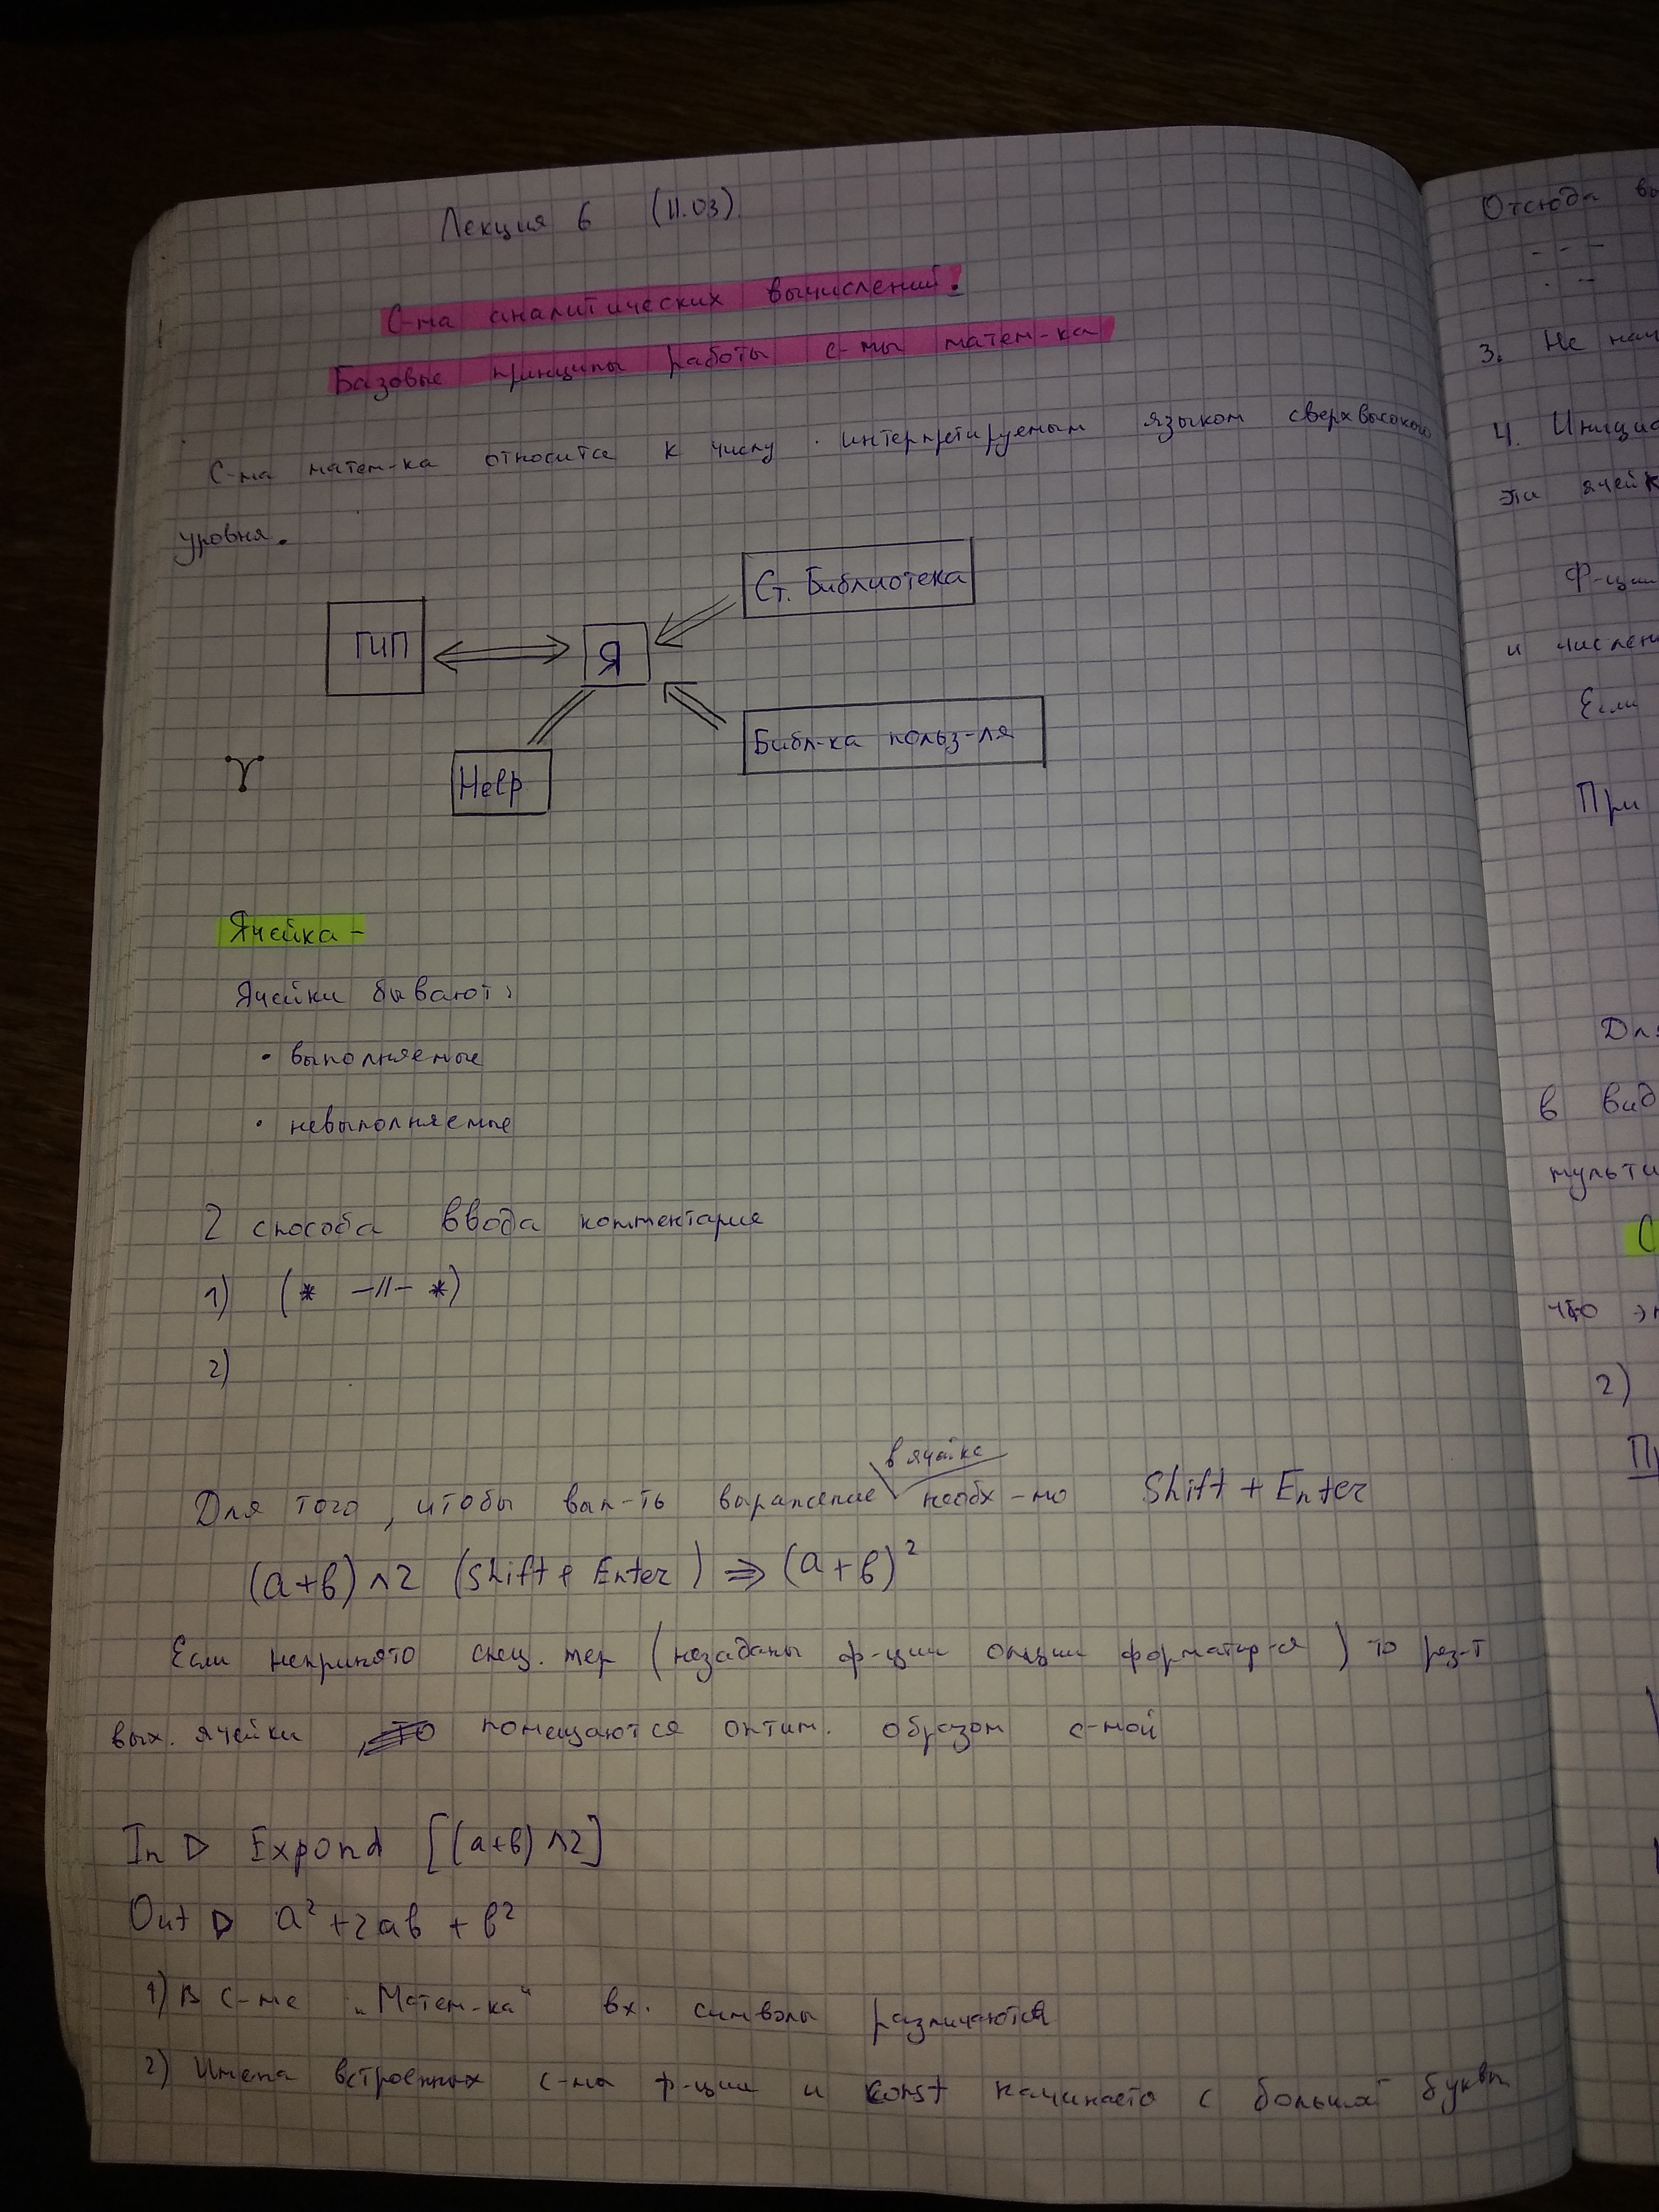 Лекция 6 (11.03)
С-ма аналитических вычислений.
Базовые принципы работы с-мы матем-ка
С-ма матем-ка относится к числу интерпретируемым языком сверхвысокого
уровня.
Ст. Библиотека
ГИП
Я
Библ-ка польз-ля
Help
Ячейка -
Ячейки бывают:
• выполняемые
• невыполняемые
2 способа ввода комментария
1) (* -//- *)
2)
в ячейке
Для того, чтобы вып-ть выражение необх-мо Shift + Enter
(a+b)^2 (Shift + Enter) => (a+b)²
Если непринято спец. мер (незаданы ф-ции опции форматир-я) то рез-т
вых. ячейки помещаются оптим. образом с-мой
In ▷ Expond [(a+b)^2]
Out ▷ a² + 2ab + b²
1) В с-ме „Матем-ка" вх. символы различаются
2) Имена встроенных с-ма ф-ции и const начинаето с большой буквы
Отсюда
3. Не
4.
эти
Ф-ции
и
Если
При
Для
в
что
2)